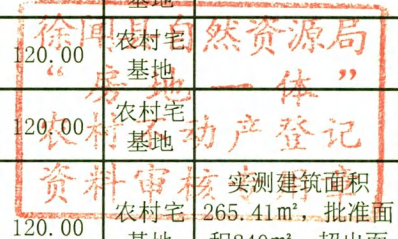 基地
120.00 农村宅基地
120.00 农村宅基地
120.00 农村宅基地 实测建筑面积
265.41㎡，批准面
积240㎡，超出面
徐闻县自然资源局
“房地一体”
农村不动产登记
资料审核专用章